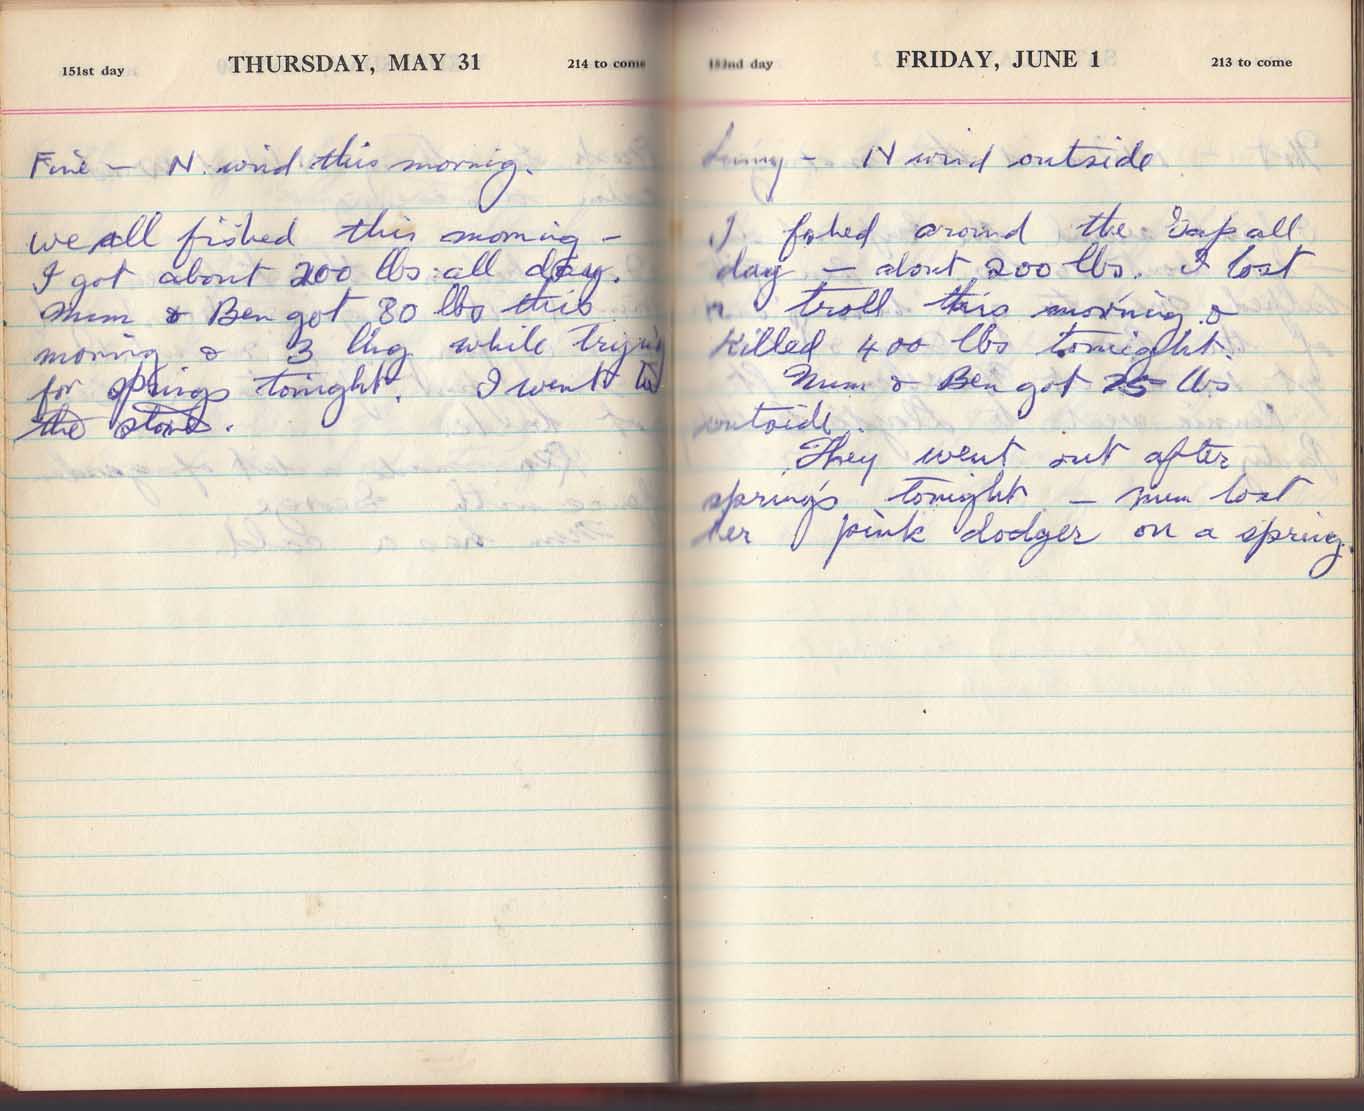 151st day THURSDAY, MAY 31 214 to come
Fine – N. wind this morning.
we all fished this morning –
I got about 200 lbs all day.
Mum & Ben got 80 lbs this
morning & 3 lhg while trying
for springs tonight. I went to
the store.
152nd day FRIDAY, JUNE 1 213 to come
– N wind outside
I fished around the Gap all
day – about 200 lbs. I lost
a troll this morning &
killed 400 lbs tonight.
Mum & Ben got 25 lbs
outside.
They went out after
springs tonight – mum lost
her pink dodger on a spring.